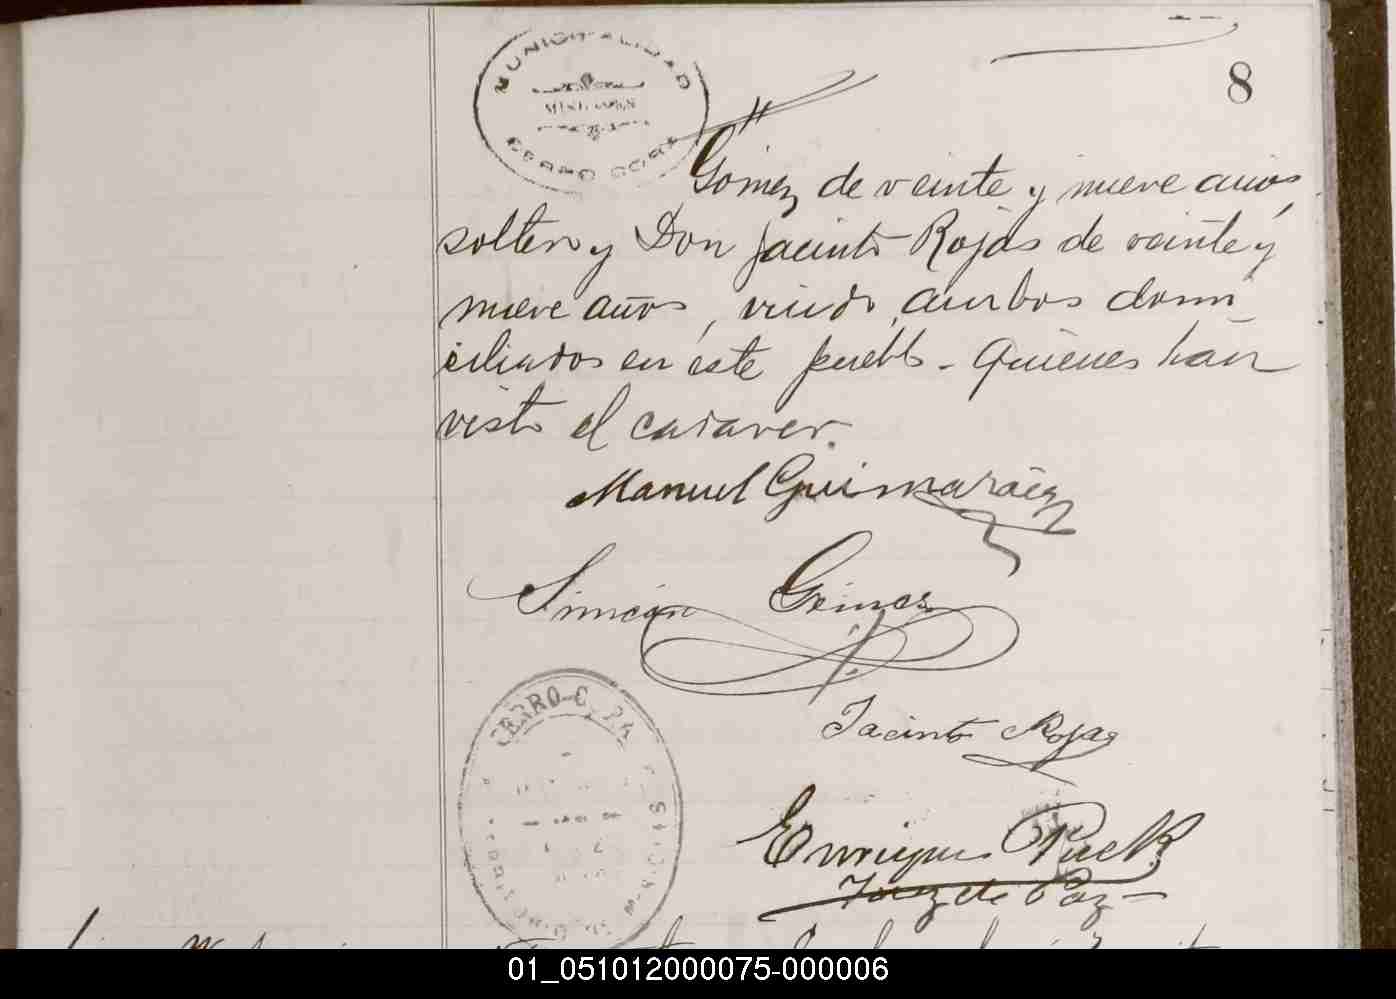 8
MUNICIPALIDAD
MISIONES
CERRO CORA
Gómez de veinte y nueve años
soltero y Don Jacinto Rojas de veinte y
nueve años, viudo, ambos domi
ciliados en este pueblo - Quienes han
visto el cadaver.
Manuel Guimaráes
Simeón Gómez
Jacinto Rojas
CERRO CORA
MISIONES
Enrique Puck
Juez de Paz
01_051012000075-000006